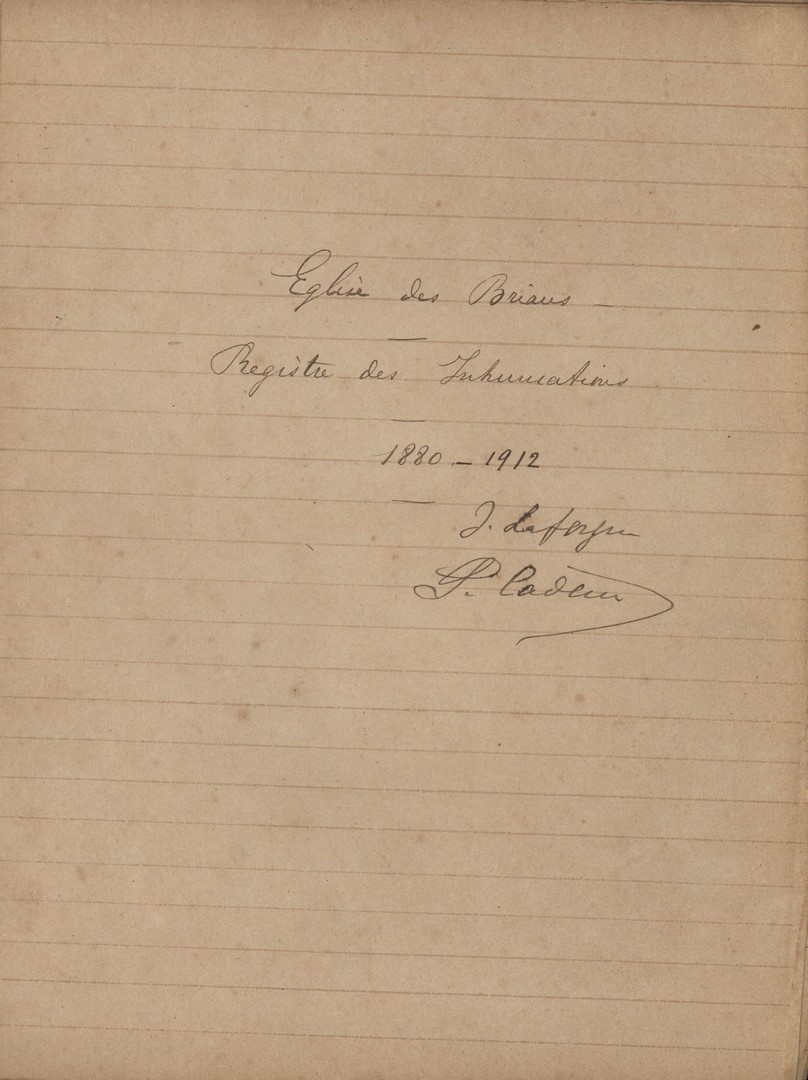 Eglise des Brians -
Registre des Inhumations
1880 - 1912
J. Laforgue
P. Cadeau